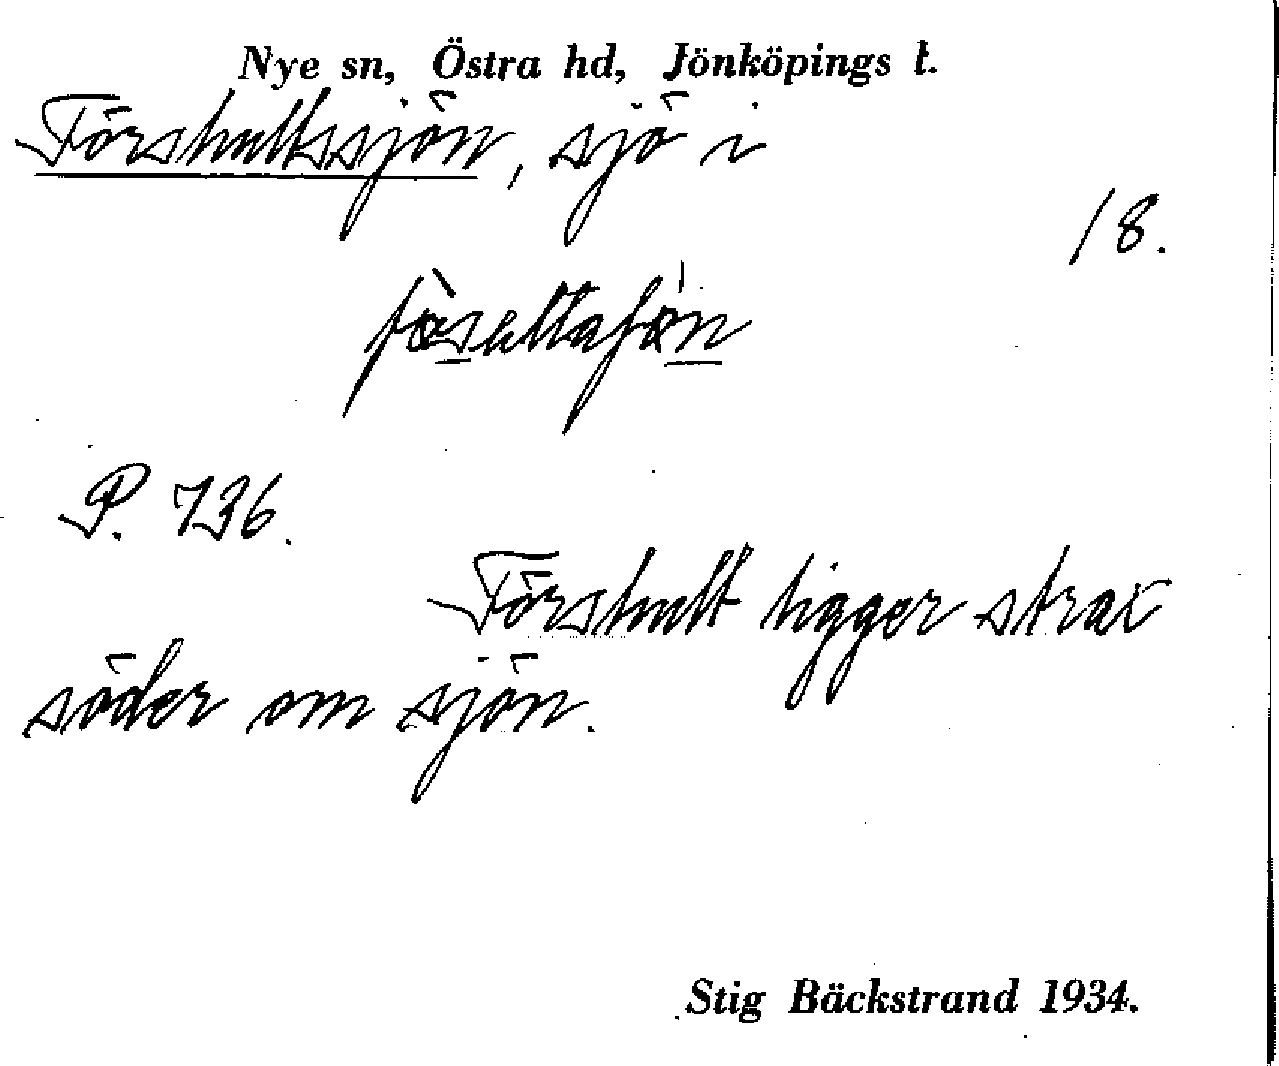 Nye sn, Östra hd, Jönköpings l.
Förshultssjön, sjö i
18.
P. 736.
Förshult ligger strax
söder om sjön.
Stig Bäckstrand 1934.